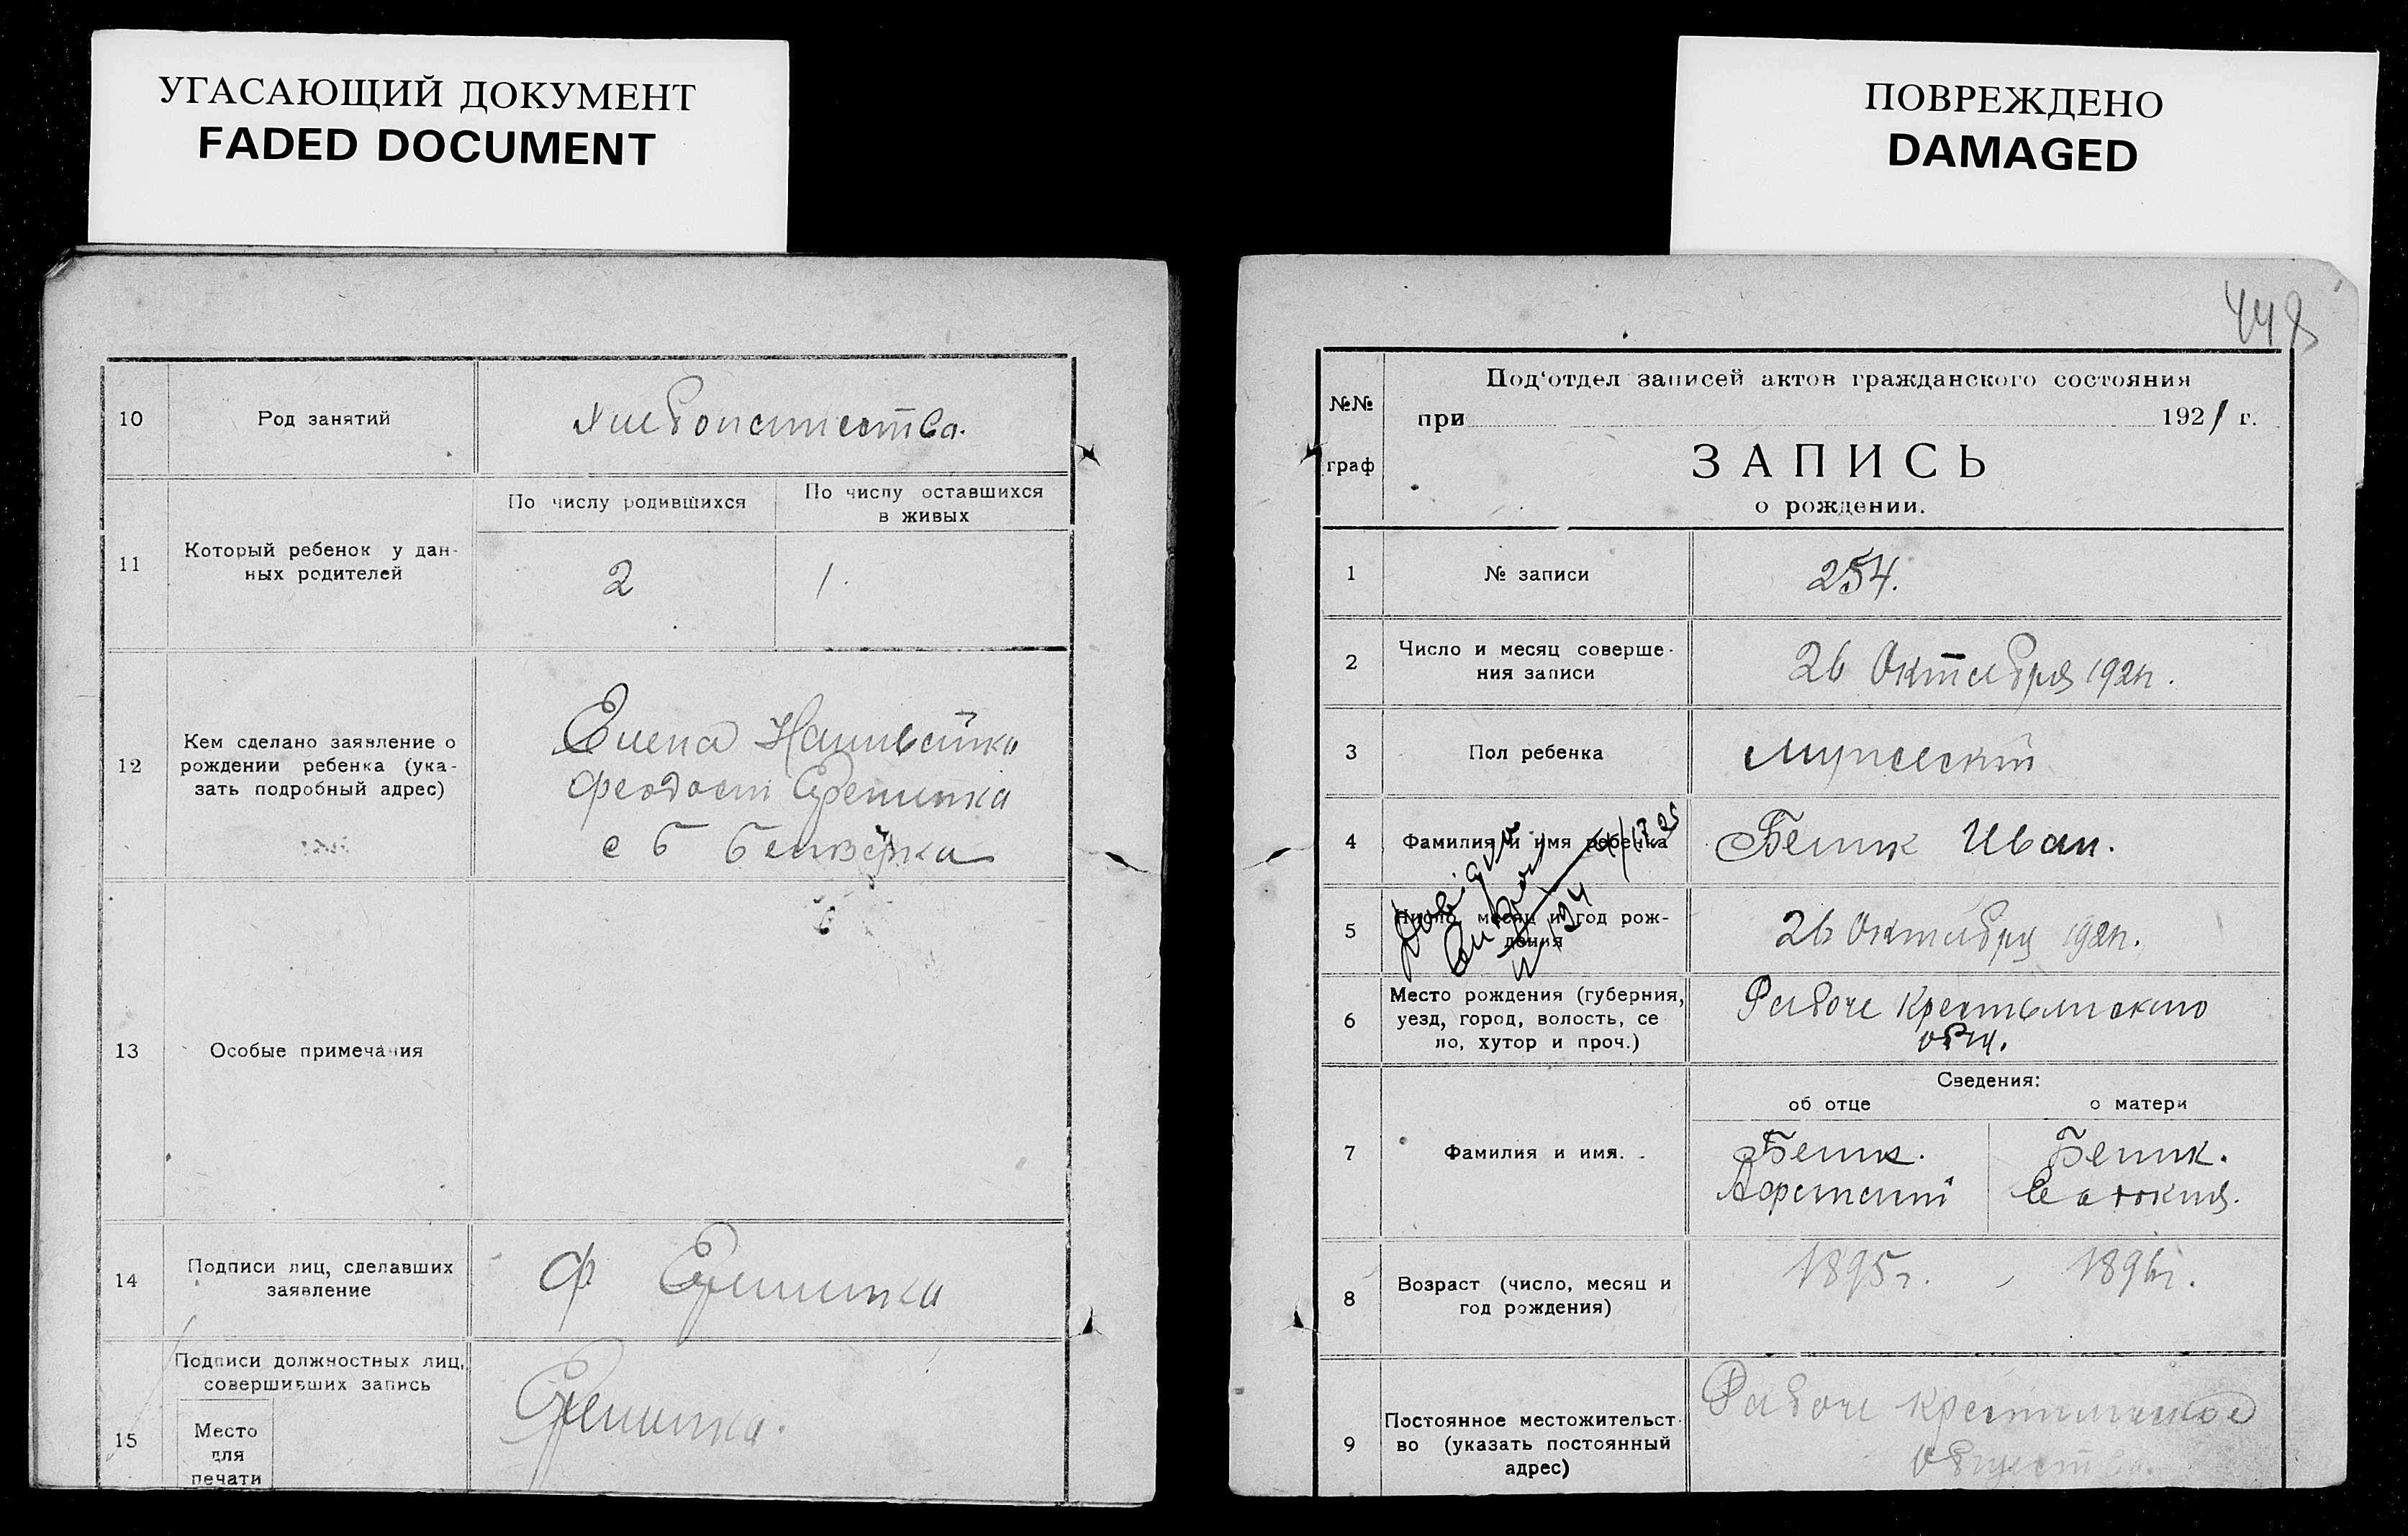 УГАСАЮЩИЙ ДОКУМЕНТ
FADED DOCUMENT
10
Род занятий
11
Который ребенок у дан-
ных родителей
По числу родившихся
По числу оставшихся
в живых
2
1.
12
Кем сделано заявление о
рождении ребенка (ука-
зать подробный адрес)
Елена
13
Особые примечания
14
Подписи лиц, сделавших
заявление
Ф
15
Подписи должностных лиц,
совершивших запись
Место
для
печати
ПОВРЕЖДЕНО
DAMAGED
448
№№
граф
Под'отдел записей актов гражданского состояния
при 1921 г.
ЗАПИСЬ
о рождении.
1
№ записи
254.
2
Число и месяц соверше-
ния записи
26 Октября 1921г.
3
Пол ребенка
мужеский
4
Фамилия и имя ребенка
Белик Иван.
5
Число месяц и год рож-
дения
26 Октября 1921г.
6
Место рождения (губерния,
уезд, город, волость, се
ло, хутор и проч.)
Рабоче Крестьянского
общ.
Сведения:
об отце
о матери
7
Фамилия и имя.
Белик.
Афанасий
Белик.
8
Возраст (число, месяц и
год рождения)
1895г.
1896г.
9
Постоянное местожительст-
во (указать постоянный
адрес)
Рабоче Крестьянское